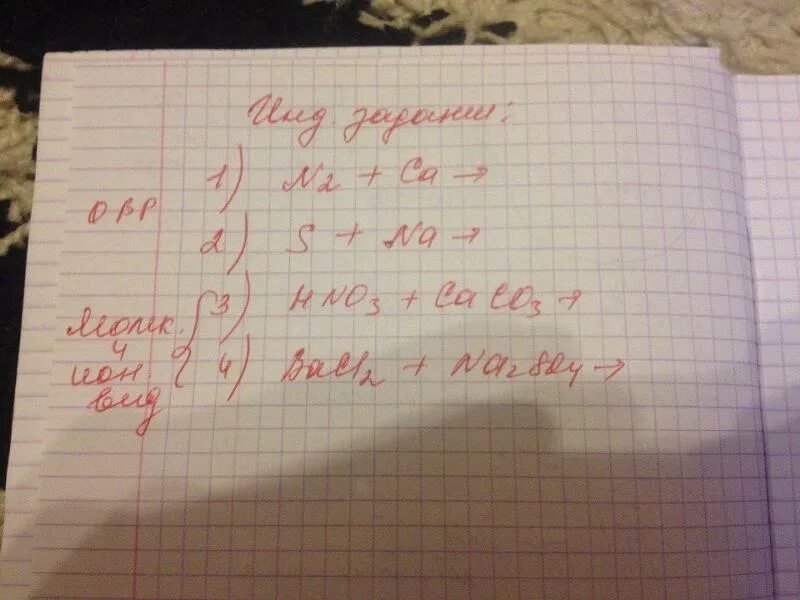 Инд. задания:
ОВР
1) N2 + Ca →
2) S + Na →
Молек.
и
ион.
вид
3) HNO3 + CaCO3 →
4) BaCl2 + Na2SO4 →